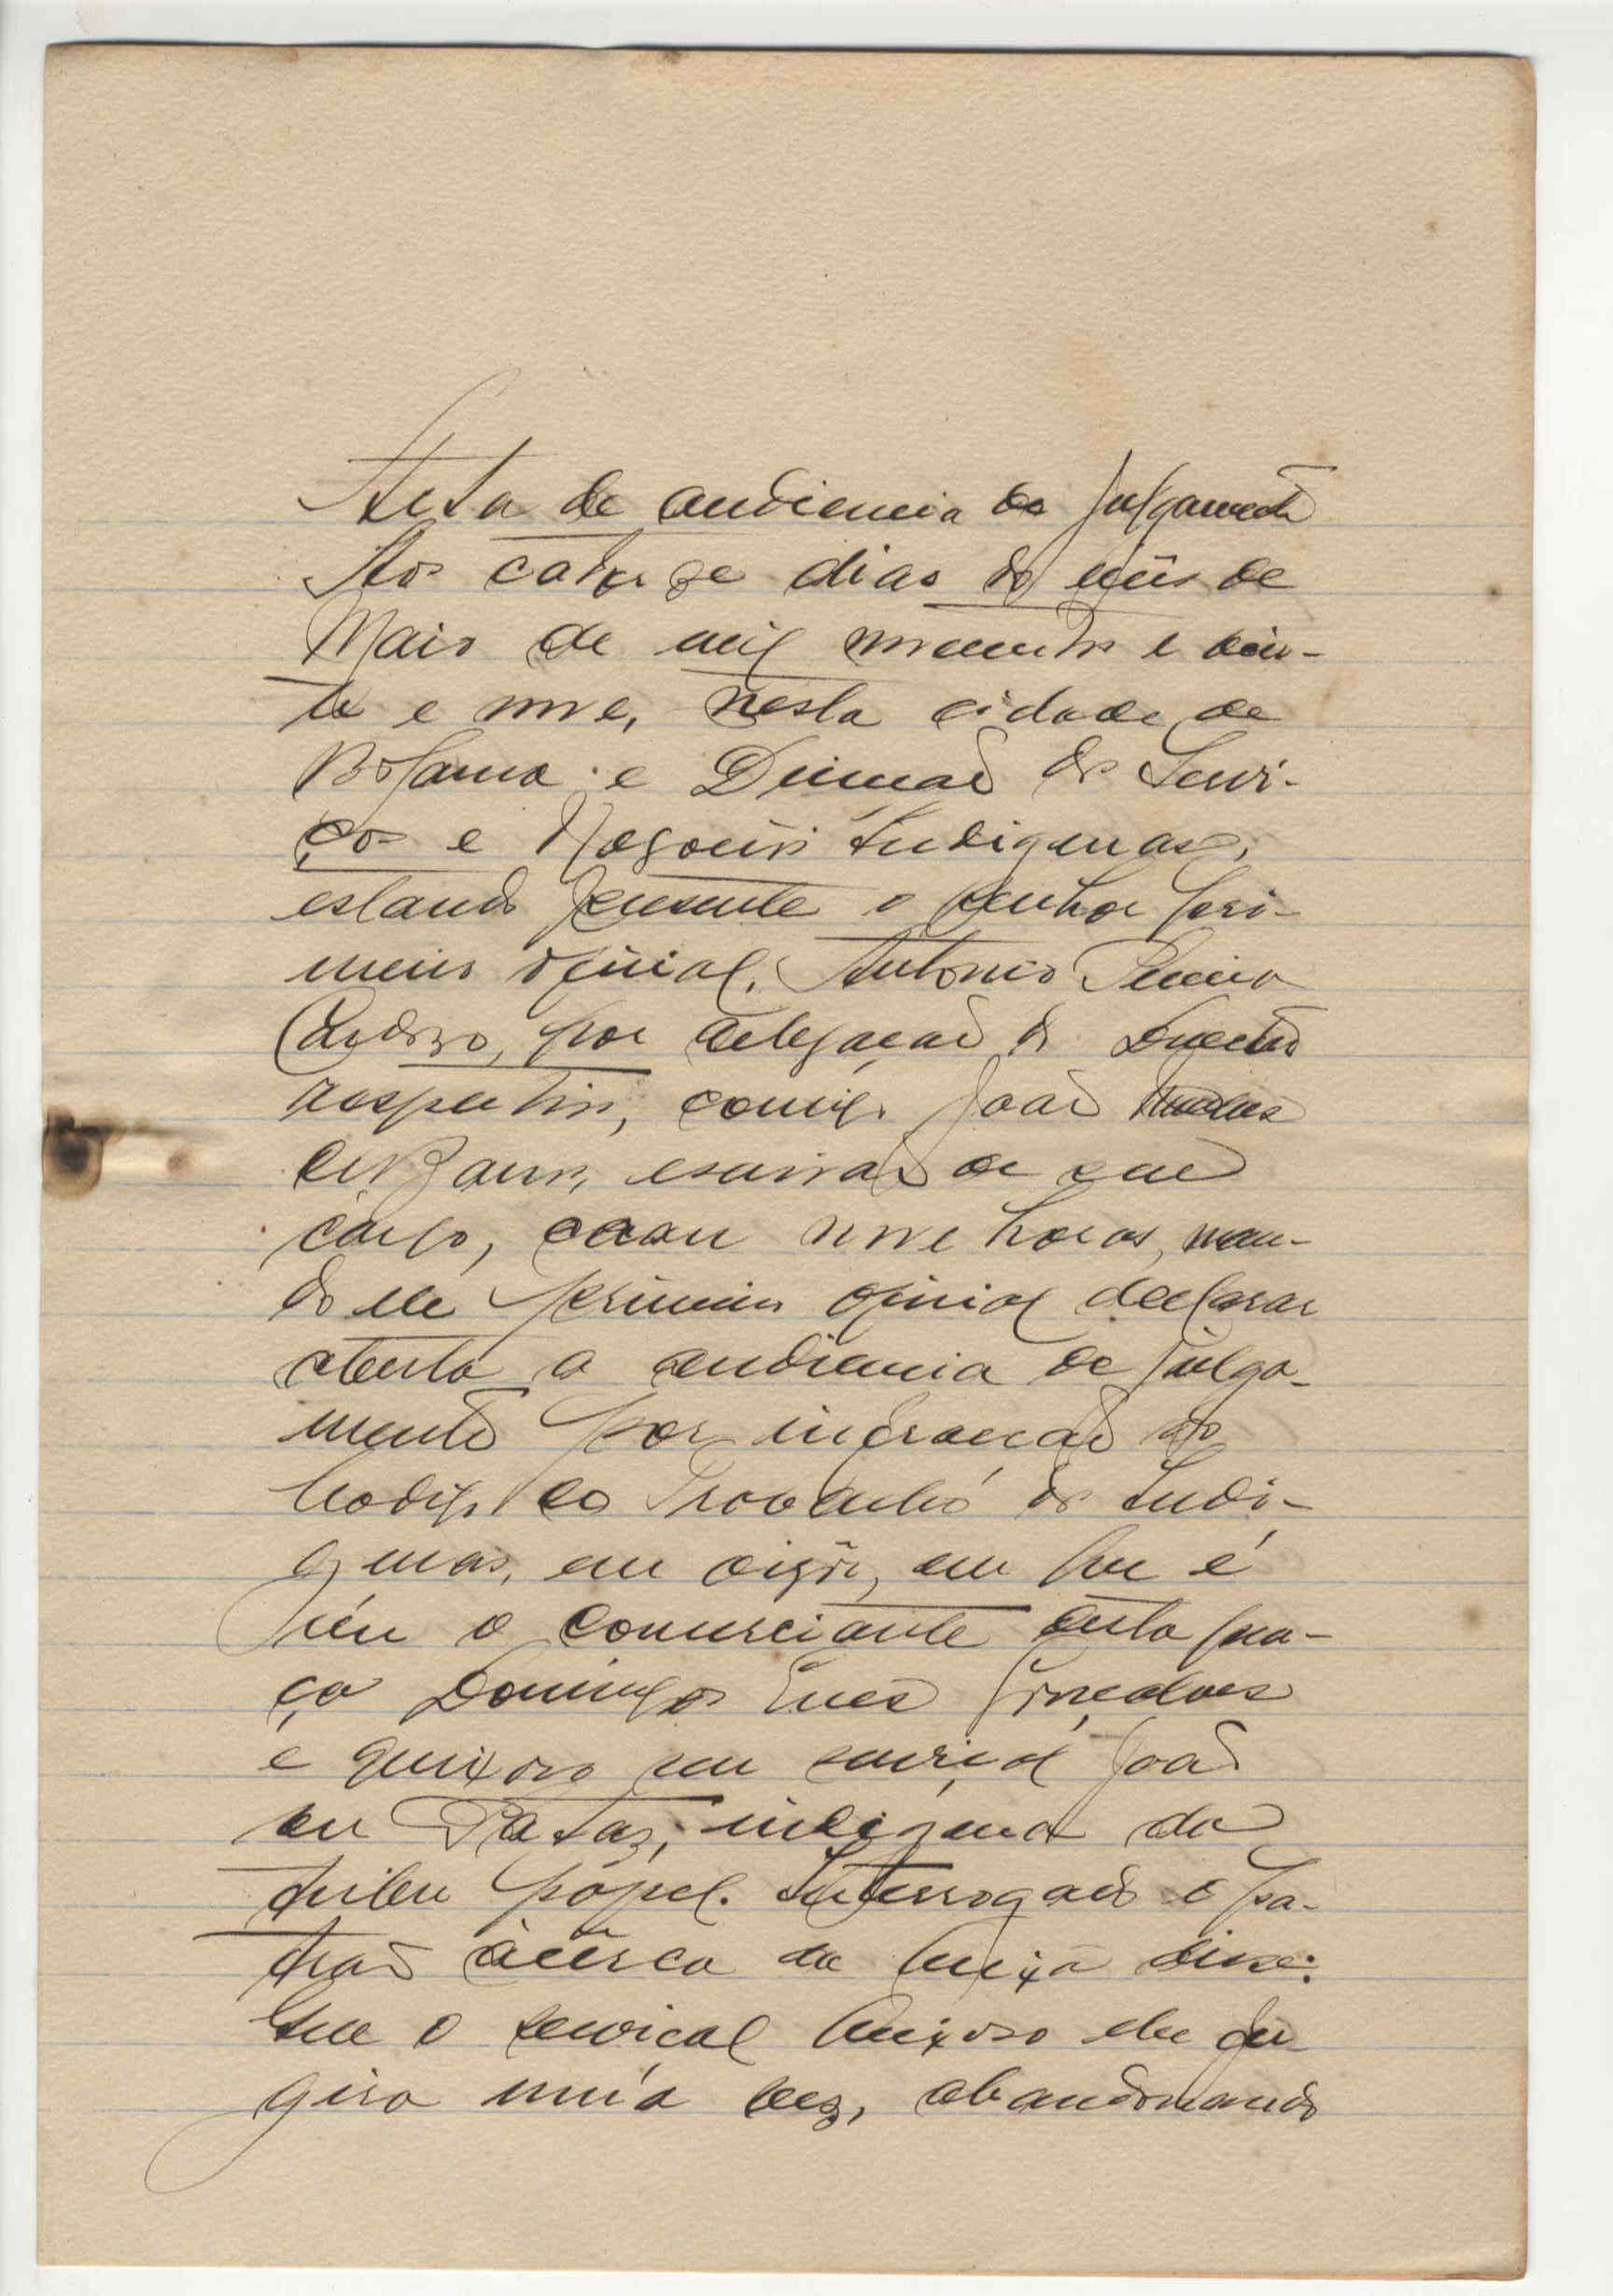 Acta de audiencia de Julgamento
Aos catorze dias do mês de
Maio de mil novecentos e vin-
te e nove, nesta cidade de
Bolama e Direcção dos Servi-
ços e Negocios Indigenas,
estando presente o senhor pri-
meiro oficial, Antonio Pereira
Cardoso, por delegação do Director
respectivo, comigo João
escrivão de seu
cargo, eram nove horas, man-
dou ele primeiro oficial declarar
aberta a audiencia de julga-
mento por infracção do
Codigo do Trabalho dos Indi-
genas, em vigor, em que é
réu o comerciante desta pra-
ça Domingos Gonçalves
e queixoso seu serviçal João
ou indigena da
tribu papel. Interrogado o pa-
trão àcêrca da queixa disse:
Que o serviçal queixoso lhe fu-
gira uma vez, abandonando